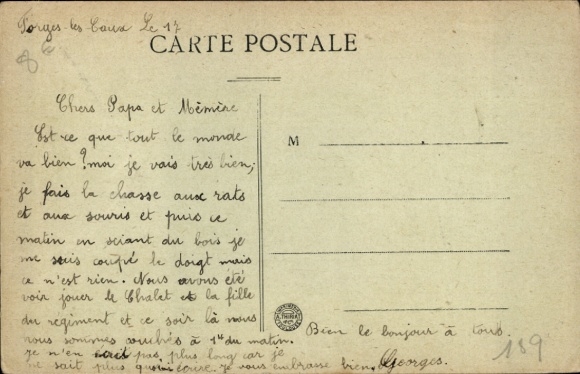 Forges-les-Eaux Le 17
CARTE POSTALE
8
Chers Papa et Mémère
Est-ce que tout le monde
va bien? moi je vais très bien,
je fais la chasse aux rats
et aux souris et puis ce
matin en sciant du bois je
me suis coupé le doigt mais
ce n'est rien. Nous avons été
voir jouer le Chalet et la fille
du regiment et ce soir là nous
nous sommes couchés à 1h du matin.
Je n'en pas plus long car je
ne sait plus quoi écrire. Je vous embrasse bien
M
Bien le bonjour à tous.
Georges.
159